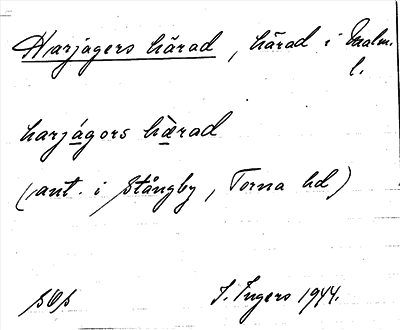 Harjagers härad, härad i Malm.
l.
harjágors hǽrad
(ant. i Stångby, Torna hd)
I. Ingers 1944.